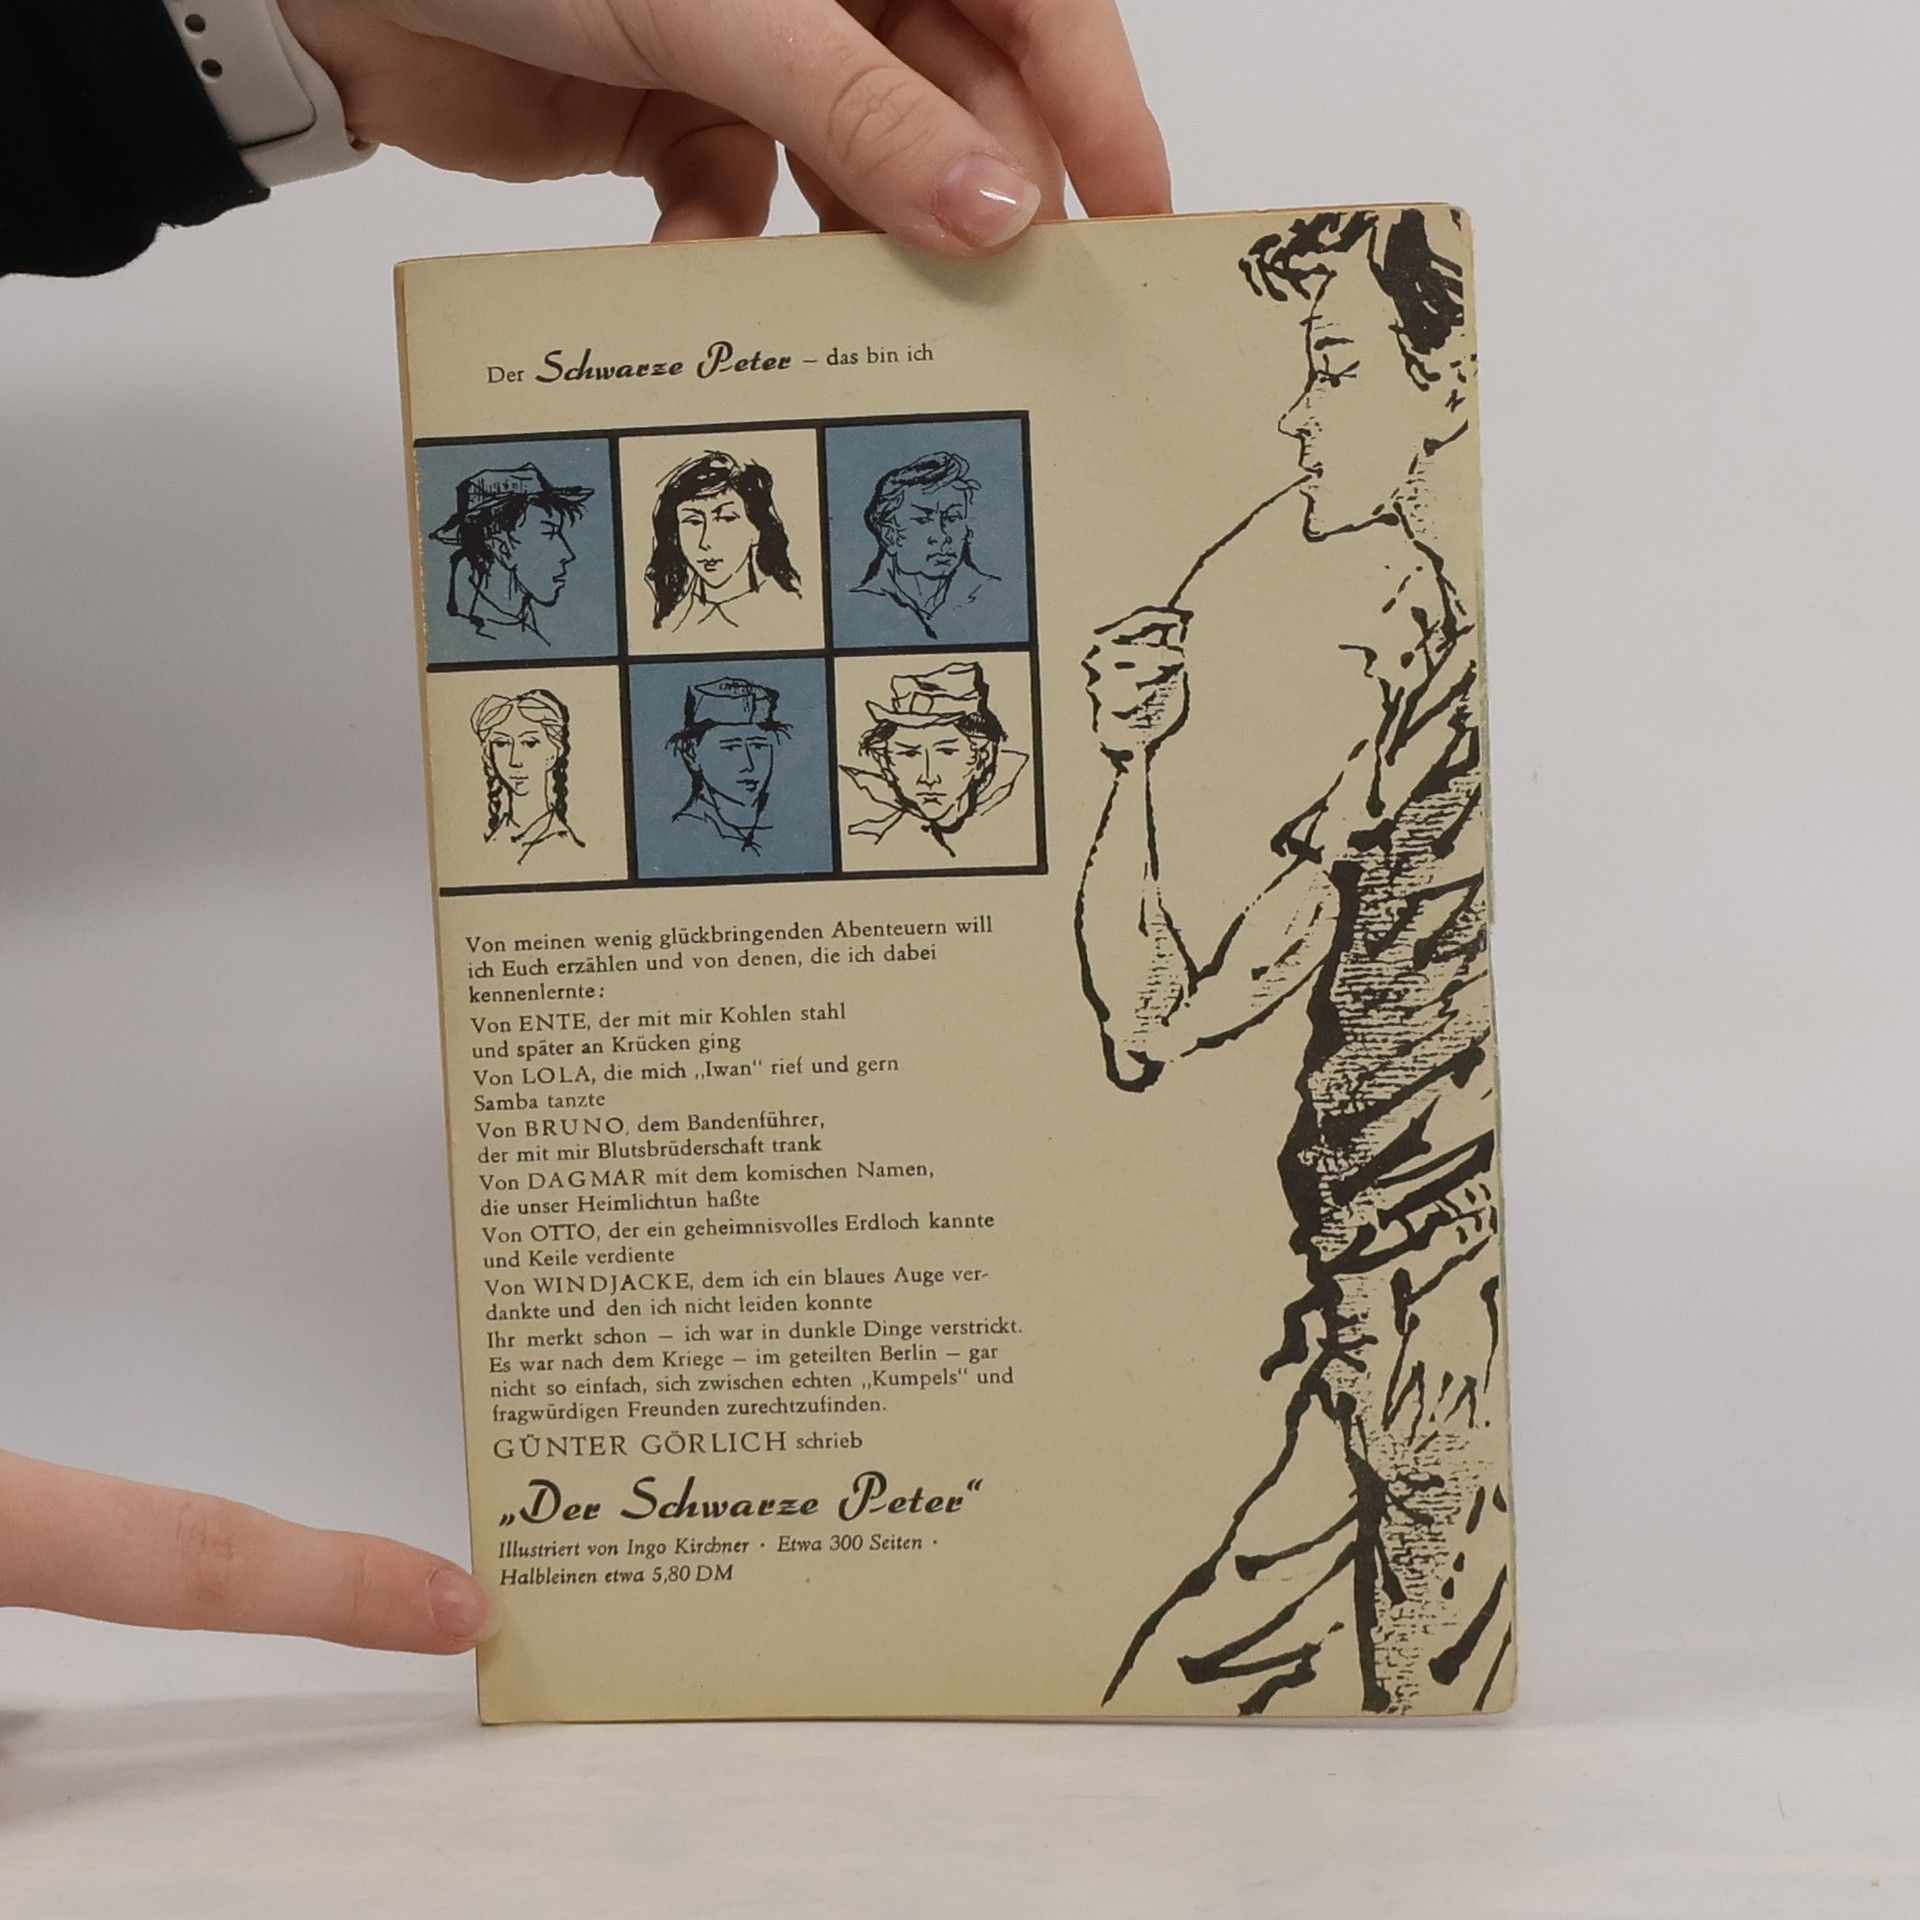 Der Schwarze Peter – das bin ich
Von meinen wenig glückbringenden Abenteuern will
ich Euch erzählen und von denen, die ich dabei
kennenlernte:
Von ENTE, der mit mir Kohlen stahl
und später an Krücken ging
Von LOLA, die mich „Iwan“ rief und gern
Samba tanzte
Von BRUNO, dem Bandenführer,
der mit mir Blutsbrüderschaft trank
Von DAGMAR mit dem komischen Namen,
die unser Heimlichtun haßte
Von OTTO, der ein geheimnisvolles Erdloch kannte
und Keile verdiente
Von WINDJACKE, dem ich ein blaues Auge ver-
dankte und den ich nicht leiden konnte
Ihr merkt schon – ich war in dunkle Dinge verstrickt.
Es war nach dem Kriege – im geteilten Berlin – gar
nicht so einfach, sich zwischen echten „Kumpels“ und
fragwürdigen Freunden zurechtzufinden.
GÜNTER GÖRLICH schrieb
„Der Schwarze Peter“
Illustriert von Ingo Kirchner · Etwa 300 Seiten ·
Halbleinen etwa 5,80 DM